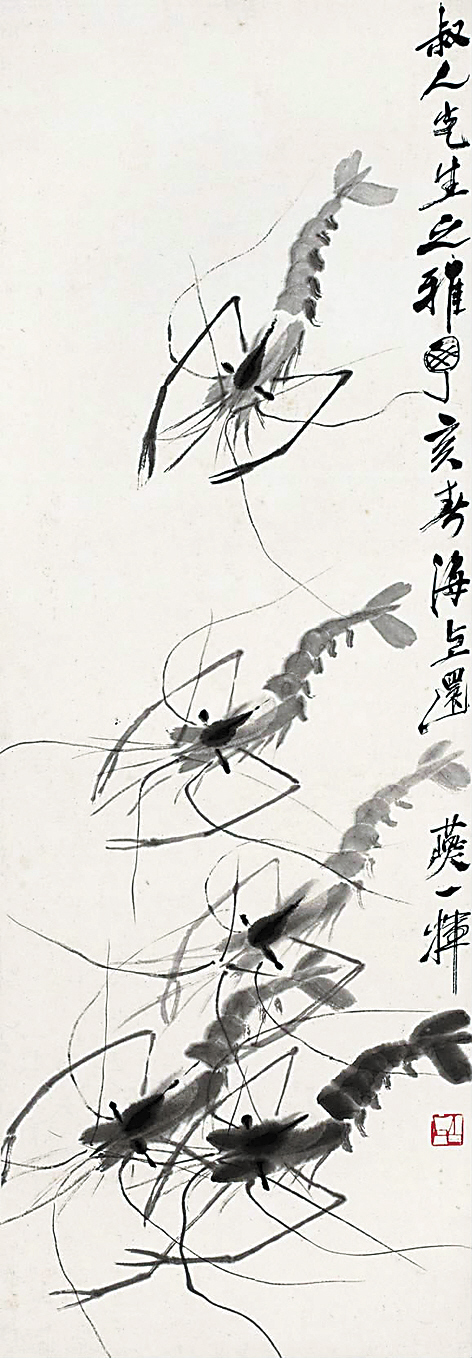 叔人先生之雅丁亥春海上還
一輝